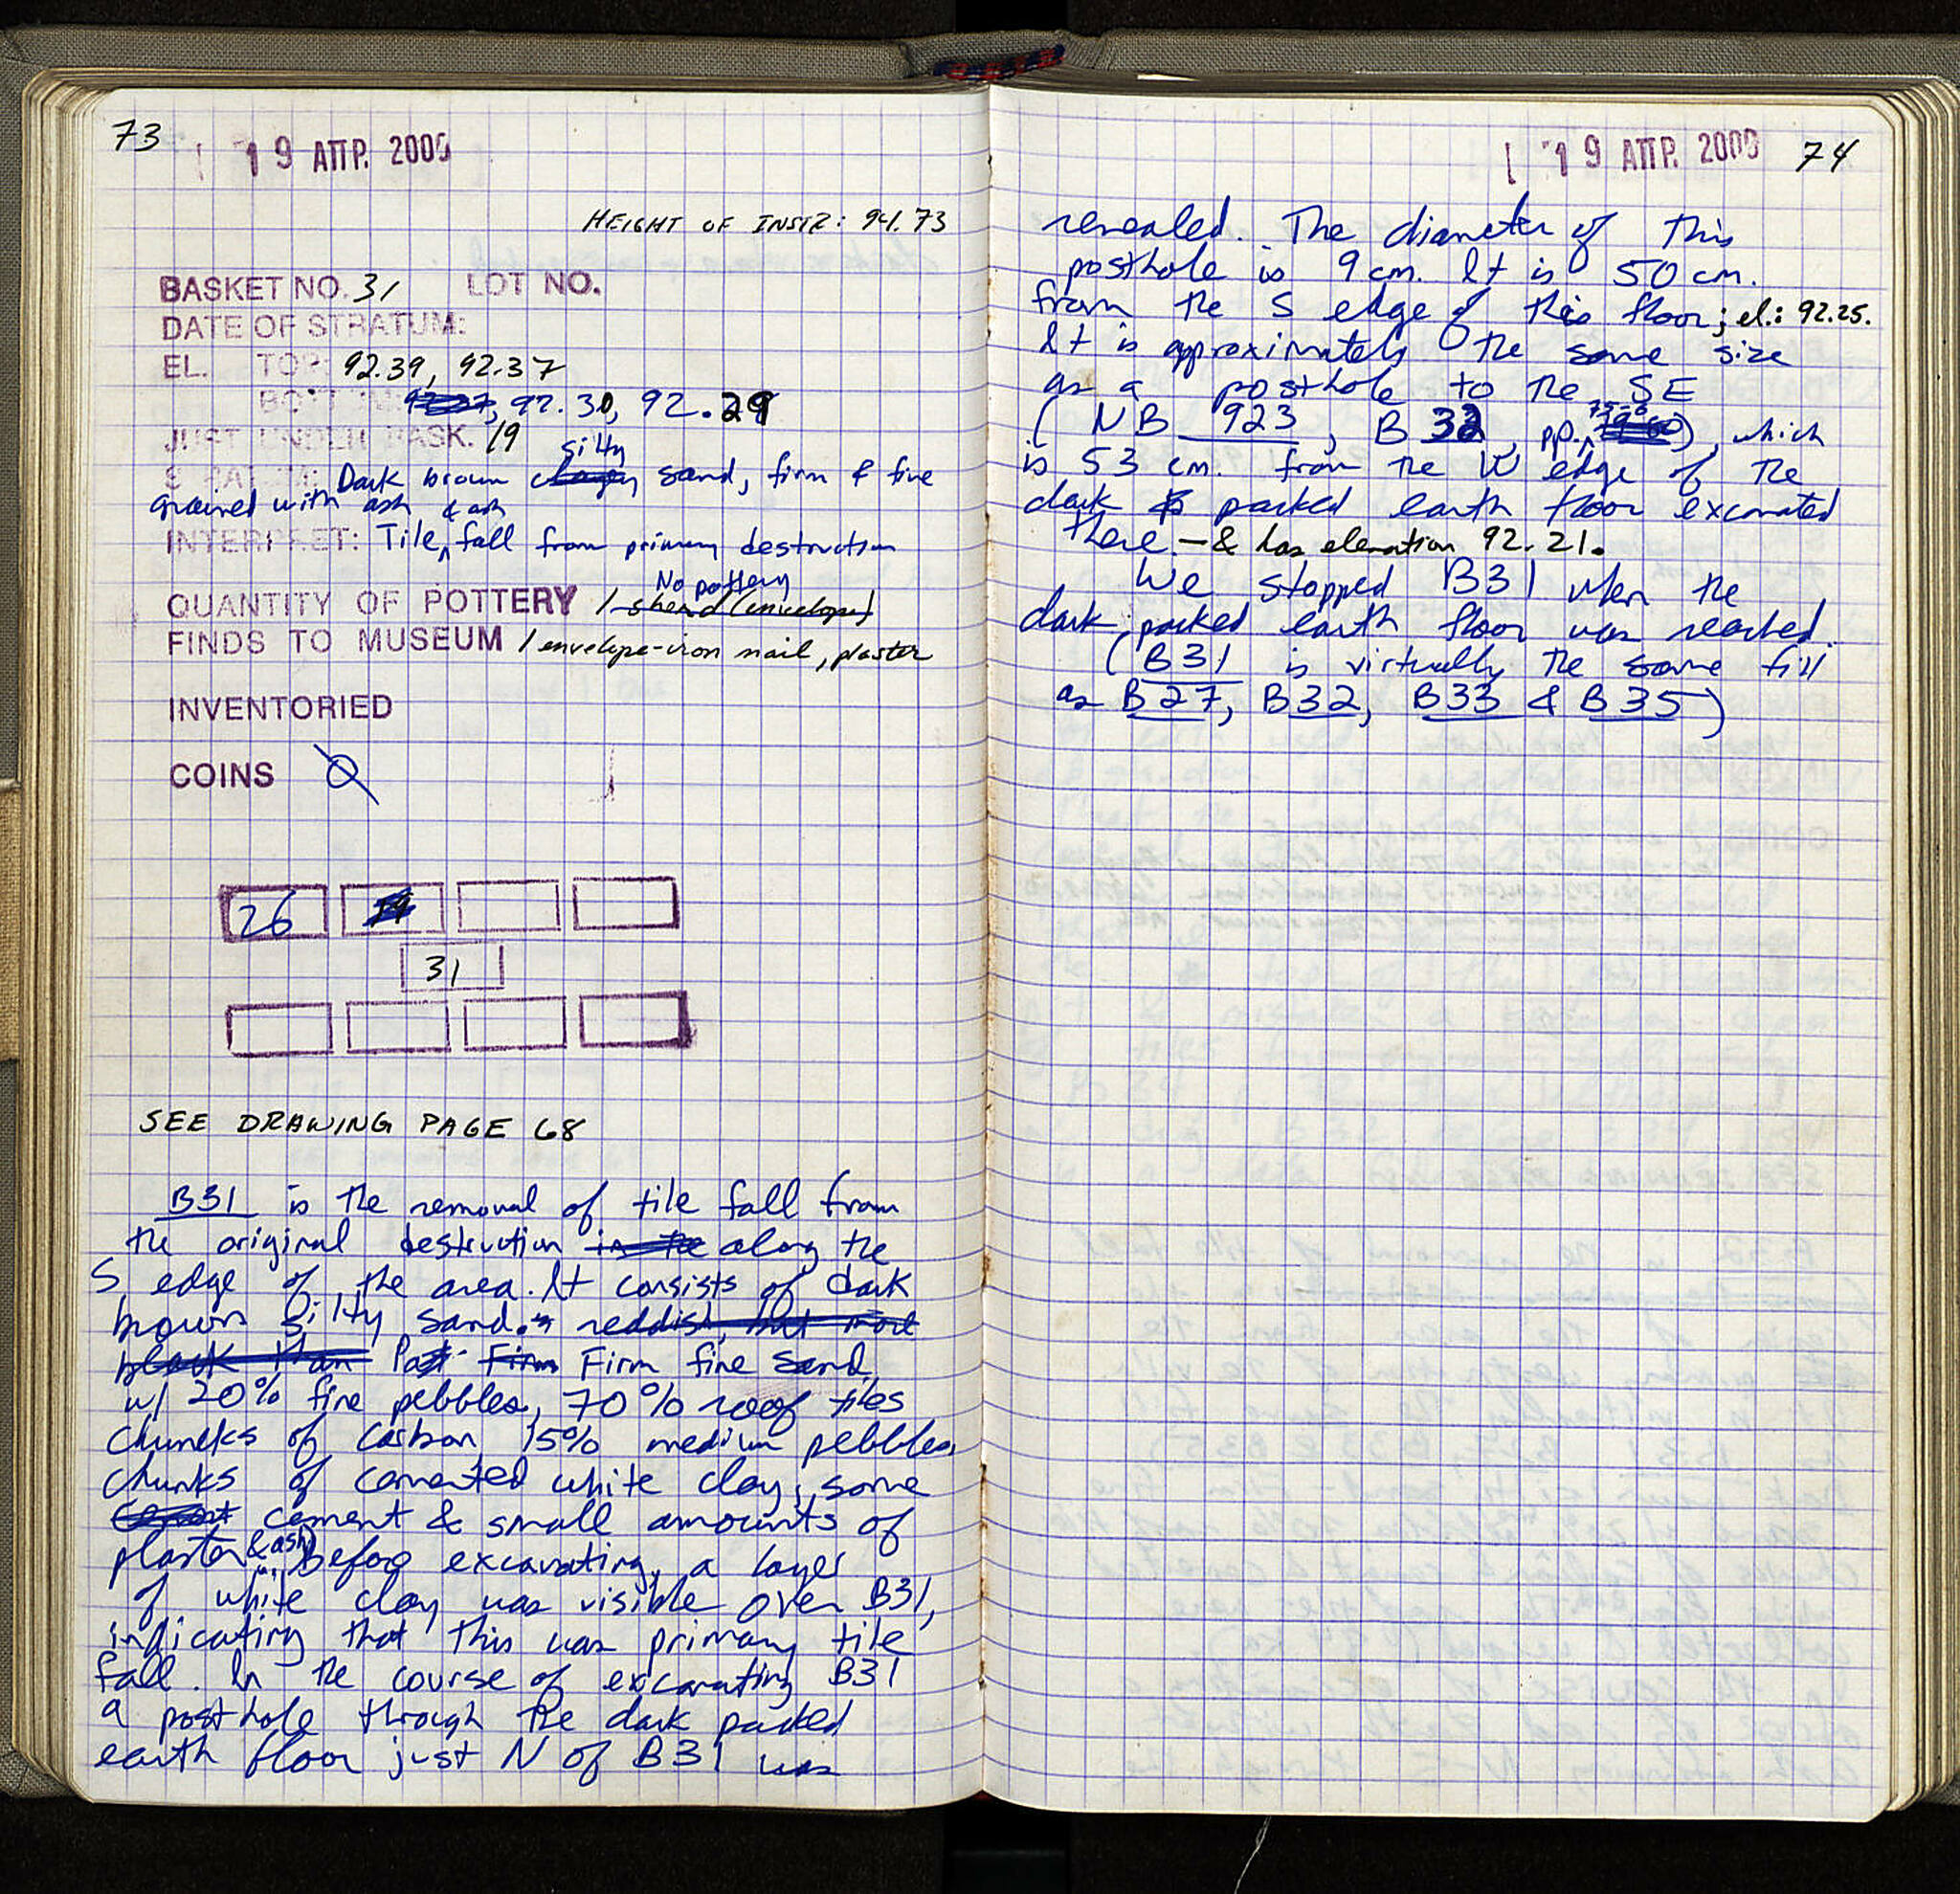 73
19 ΑΠΡ. 2000
HEIGHT OF INSTR: 94.73
BASKET NO. 31 LOT NO.
DATE OF STRATUM:
EL. TOP: 92.39, 92.37
BOTTOM: 92.30, 92.29
JUST UNDER BASK. 19
silty
STRATUM: Dark brown clayey sand, firm & fine
grained with ash
& ash
INTERPRET: Tile fall from primary destruction
No pottery
QUANTITY OF POTTERY 1 sherd (envelope)
FINDS TO MUSEUM 1 envelope-iron nail, plaster
INVENTORIED
COINS Ø
26 19
31
SEE DRAWING PAGE 68
B31 is the removal of tile fall from
the original destruction in the along the
S edge of the area. It consists of dark
brown silty sand. reddish, but more
black than Firm Firm fine sand
w/ 20% fine pebbles, 70% roof tiles
chuncks of carbon, 15% medium pebbles,
chunks of cemented white clay, some
cement & small amounts of
plaster & ash. Before excavating, a layer
of white clay was visible over B31,
indicating that this was primary tile
fall. In the course of excavating B31
a posthole through the dark packed
earth floor just N of B31 was
19 ΑΠΡ. 2000 74
revealed. The diameter of this
posthole is 9 cm. It is 50 cm.
from the S edge of this floor; el.: 92.25.
It is approximately the same size
as a posthole to the SE
(NB 923, B 32, pp. ), which
is 53 cm. from the W edge of the
dark packed earth floor excavated
there. - & has elevation 92.21.
We stopped B31 when the
dark, packed earth floor was reached.
(B31 is virtually the same fill
as B27, B32, B33 & B35)